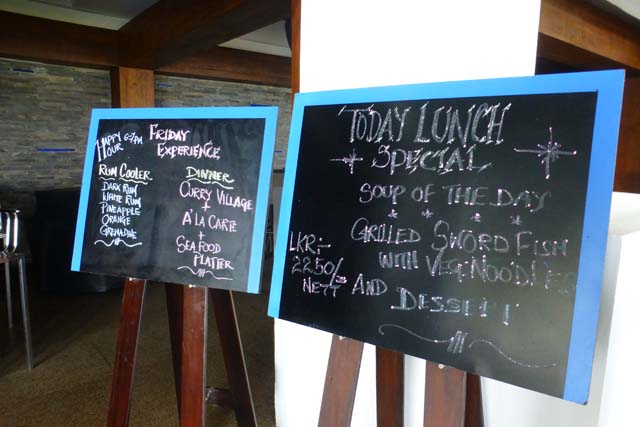 HAPPY 6-7PM
HOUR
FRIDAY
EXPERIENCE
RUM COOLER
DARK RUM
WHITE RUM
PINEAPPLE
ORANGE
GRENADINE
DINNER
CURRY VILLAGE
+
A'LA CARTE
+
SEA FOOD
PLATTER
TODAY LUNCH
SPECIAL
SOUP OF THE DAY
GRILLED SWORD FISH
WITH VEG. NOODLES
AND DESSERT
LKR:-
2250/=
NETT